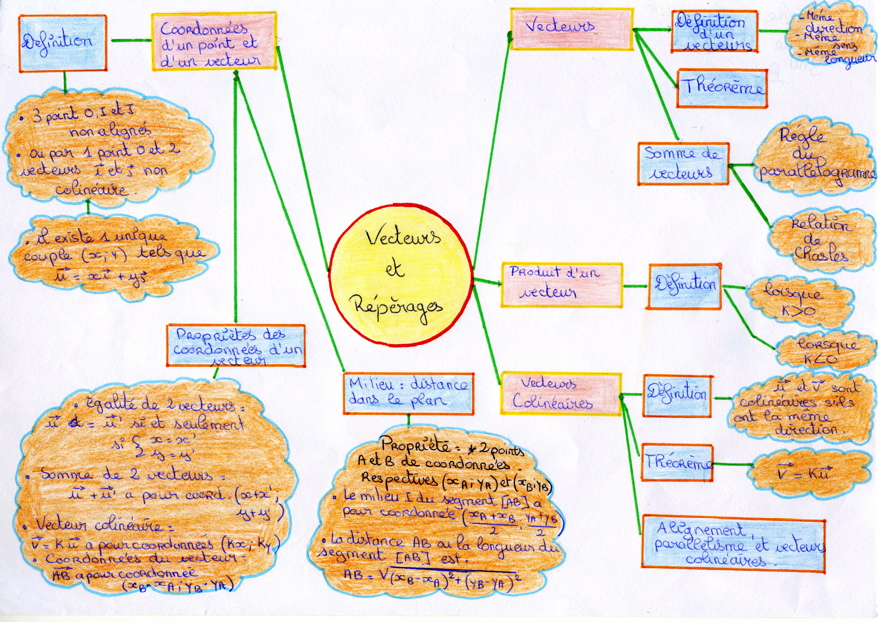 Vecteurs
et
Répérages
Définition
Coordonnées
d'un point et
d'un vecteur
• 3 point O, I et J
non alignés
• Ou par 1 point O et 2
vecteurs i⃗ et j⃗ non
colinéaire.
• il existe 1 unique
couple (x, y) tels que
u⃗ = xi⃗ + yj⃗
Propriètés des
coordonnées d'un
vecteur
• égalité de 2 vecteurs =
u⃗ = u⃗' si et seulement
si { x = x'
y = y'
• Somme de 2 vecteurs =
u⃗ + u⃗' a pour coord. (x+x',
y+y')
• Vecteur colinéaire =
v⃗ = K u⃗ a pour coordonnées (Kx, Ky)
• Coordonnées du vecteur =
AB⃗ a pour coordonnée
(xB - xA ; yB - yA)
Milieu : distance
dans le plan
Propriété = * 2 points
A et B de coordonnées
Respectives (xA ; yA) et (xB ; yB)
• Le milieu I du segment [AB] a
pour coordonnée (xA + xB / 2, yA + yB / 2)
• La distance AB ou la longueur du
segment [AB] est.
AB = √(xB - xA)² + (yB - yA)²
Vecteurs
Définition
d'un
vecteurs
- Même
direction
- Même
sens
- Même
longueur
Théorème
Somme de
vecteurs
Régle
du
parallélogramme
Relation
de
Chasles
Produit d'un
vecteur
Définition
lorsque
K>0
lorsque
K<0
Vecteurs
Colinéaires
Définition
u⃗ et v⃗ sont
colinéaires s'ils
ont la même
direction.
Théorème
v⃗ = Ku⃗
Alignement,
parallélisme et vecteurs
colinéaires.